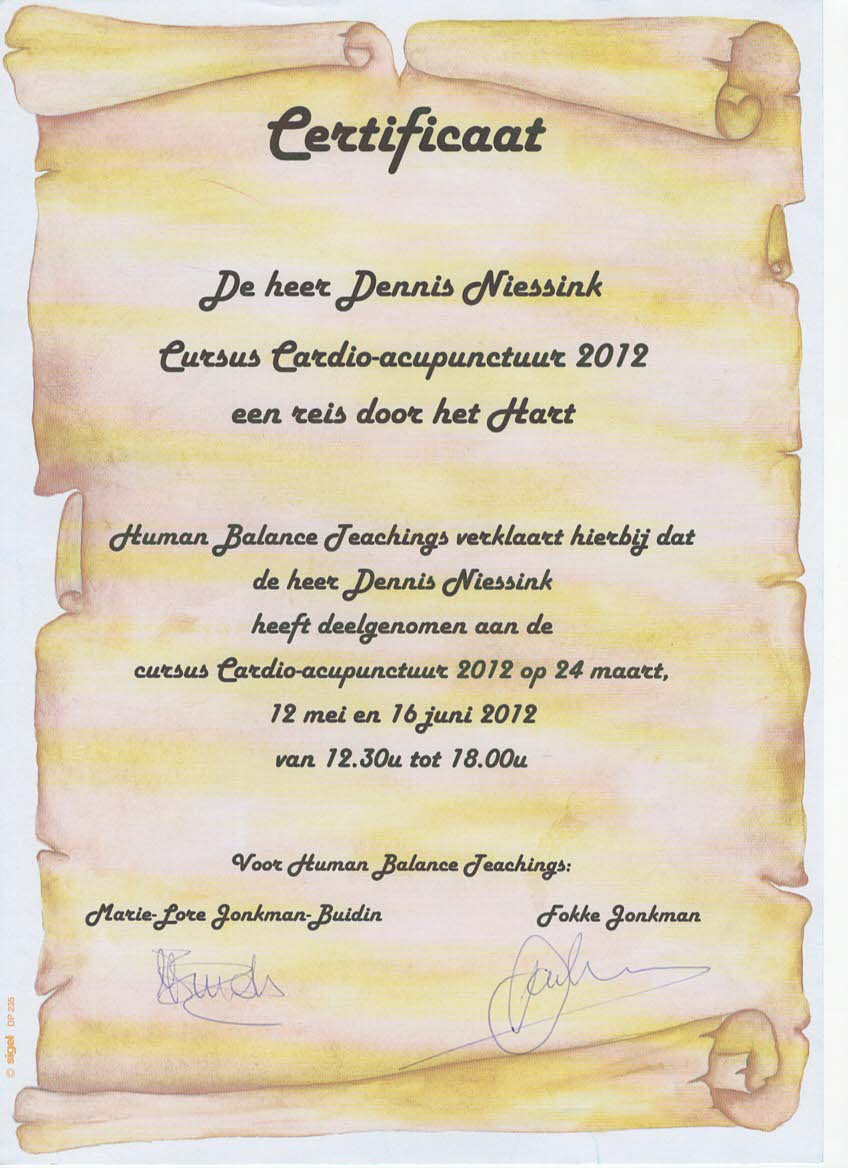 Certificaat
De heer Dennis Niessink
Cursus Cardio-acupunctuur 2012
een reis door het Hart
Human Balance Teachings verklaart hierbij dat
de heer Dennis Niessink
heeft deelgenomen aan de
cursus Cardio-acupunctuur 2012 op 24 maart,
12 mei en 16 juni 2012
van 12.30u tot 18.00u
Voor Human Balance Teachings:
Marie-Lore Jonkman-Buidin Fokke Jonkman
© sigel DP 235